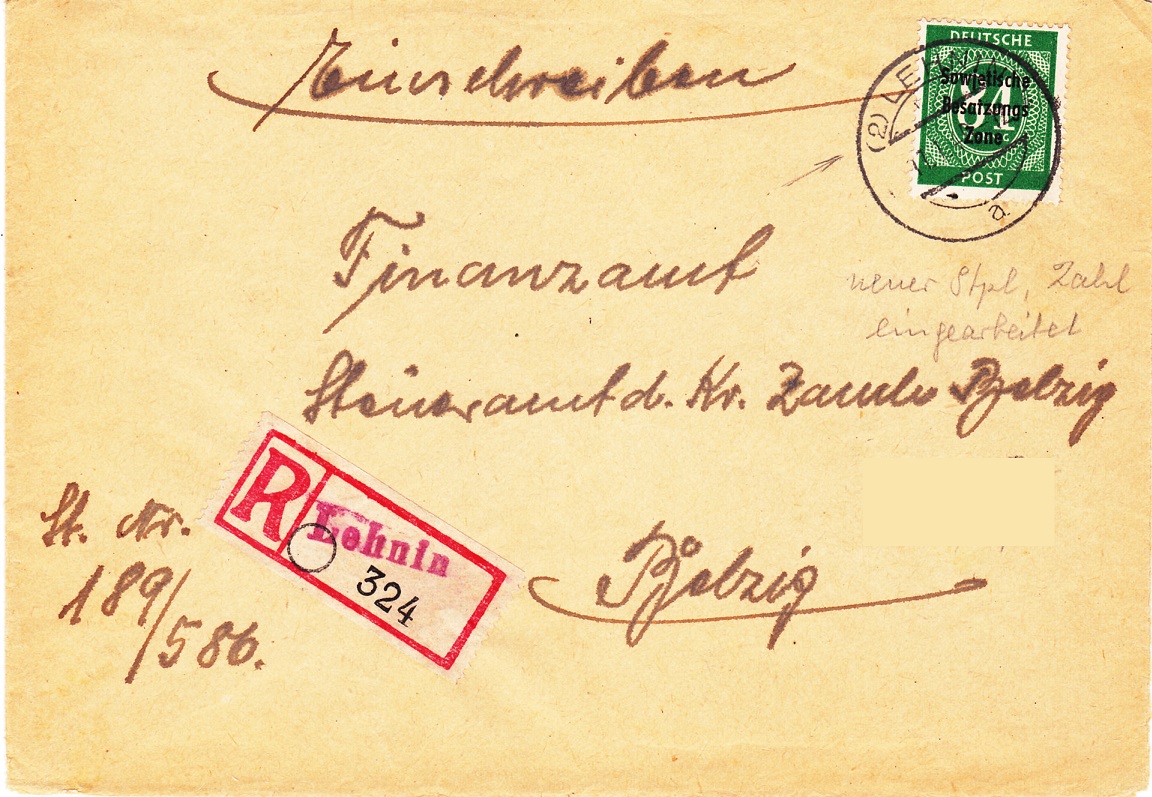 Einschreiben
DEUTSCHE
Sowjetische
Besatzungs
Zone
84
POST
(2) LEHNIN
a
Finanzamt
neuer Stpl, Zahl
eingearbeitet
Steueramt d. Kr. Zauch Belzig
R Lehnin
324
St. Nr.
189/
586.
Belzig